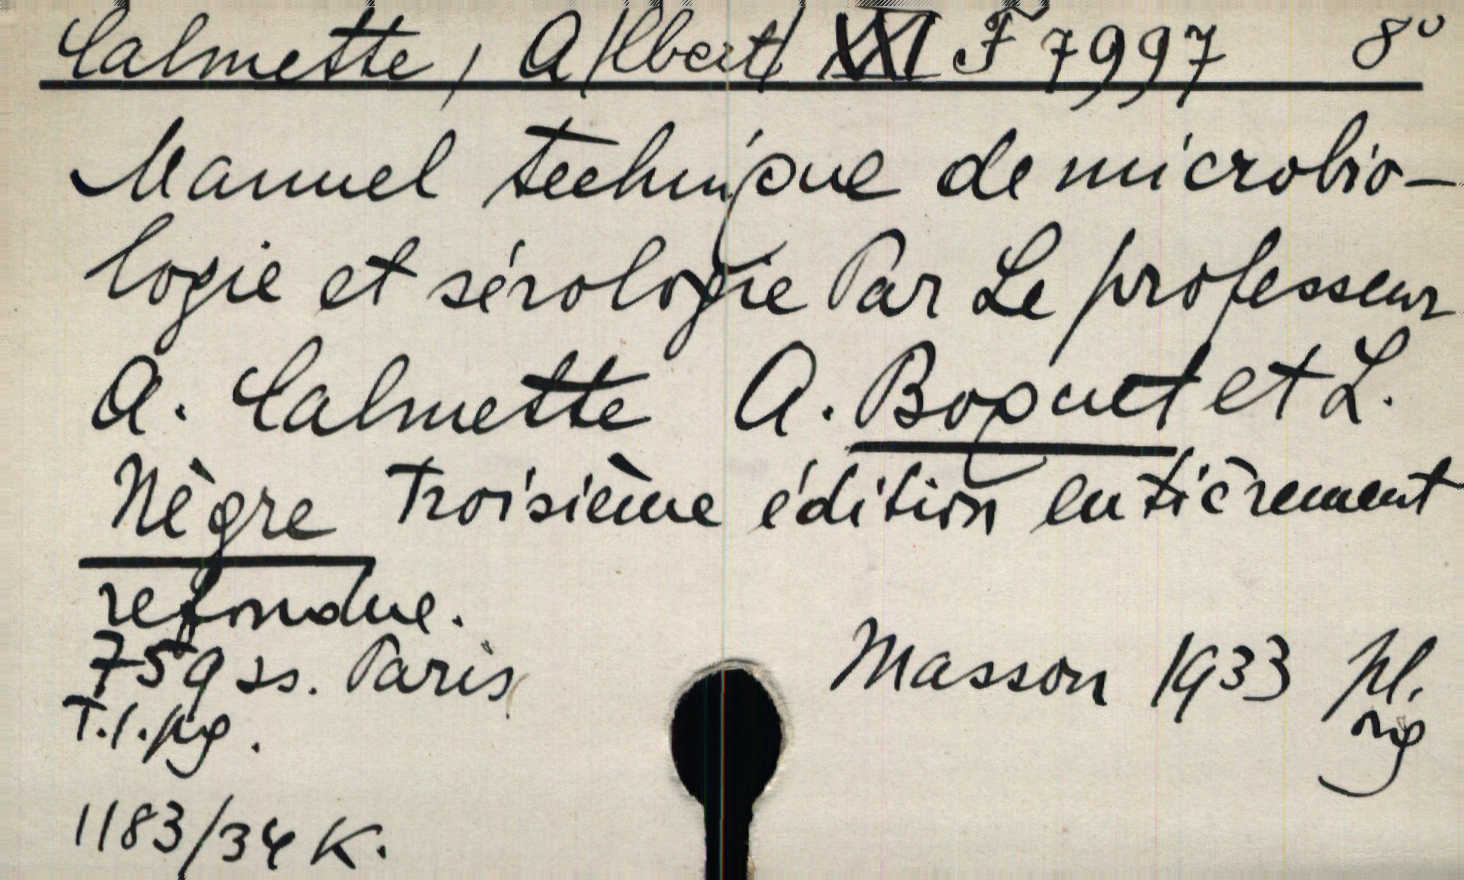 Calmette, A/lbert/ XXI F 7997 8°
Manuel technique de microbio-
logie et sérologie Par Le professeur
A. Calmette A. Boquet et L.
Nègre Troisième édition entièrement
refondue.
759 ss. Paris Masson 1933 pl.
T.1.kg. rig
1183/34 K.